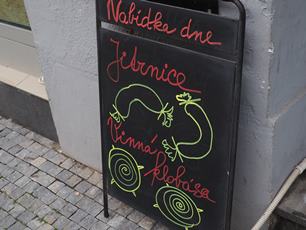 Nabídka dne
Jitrnice
Vinná
klobása